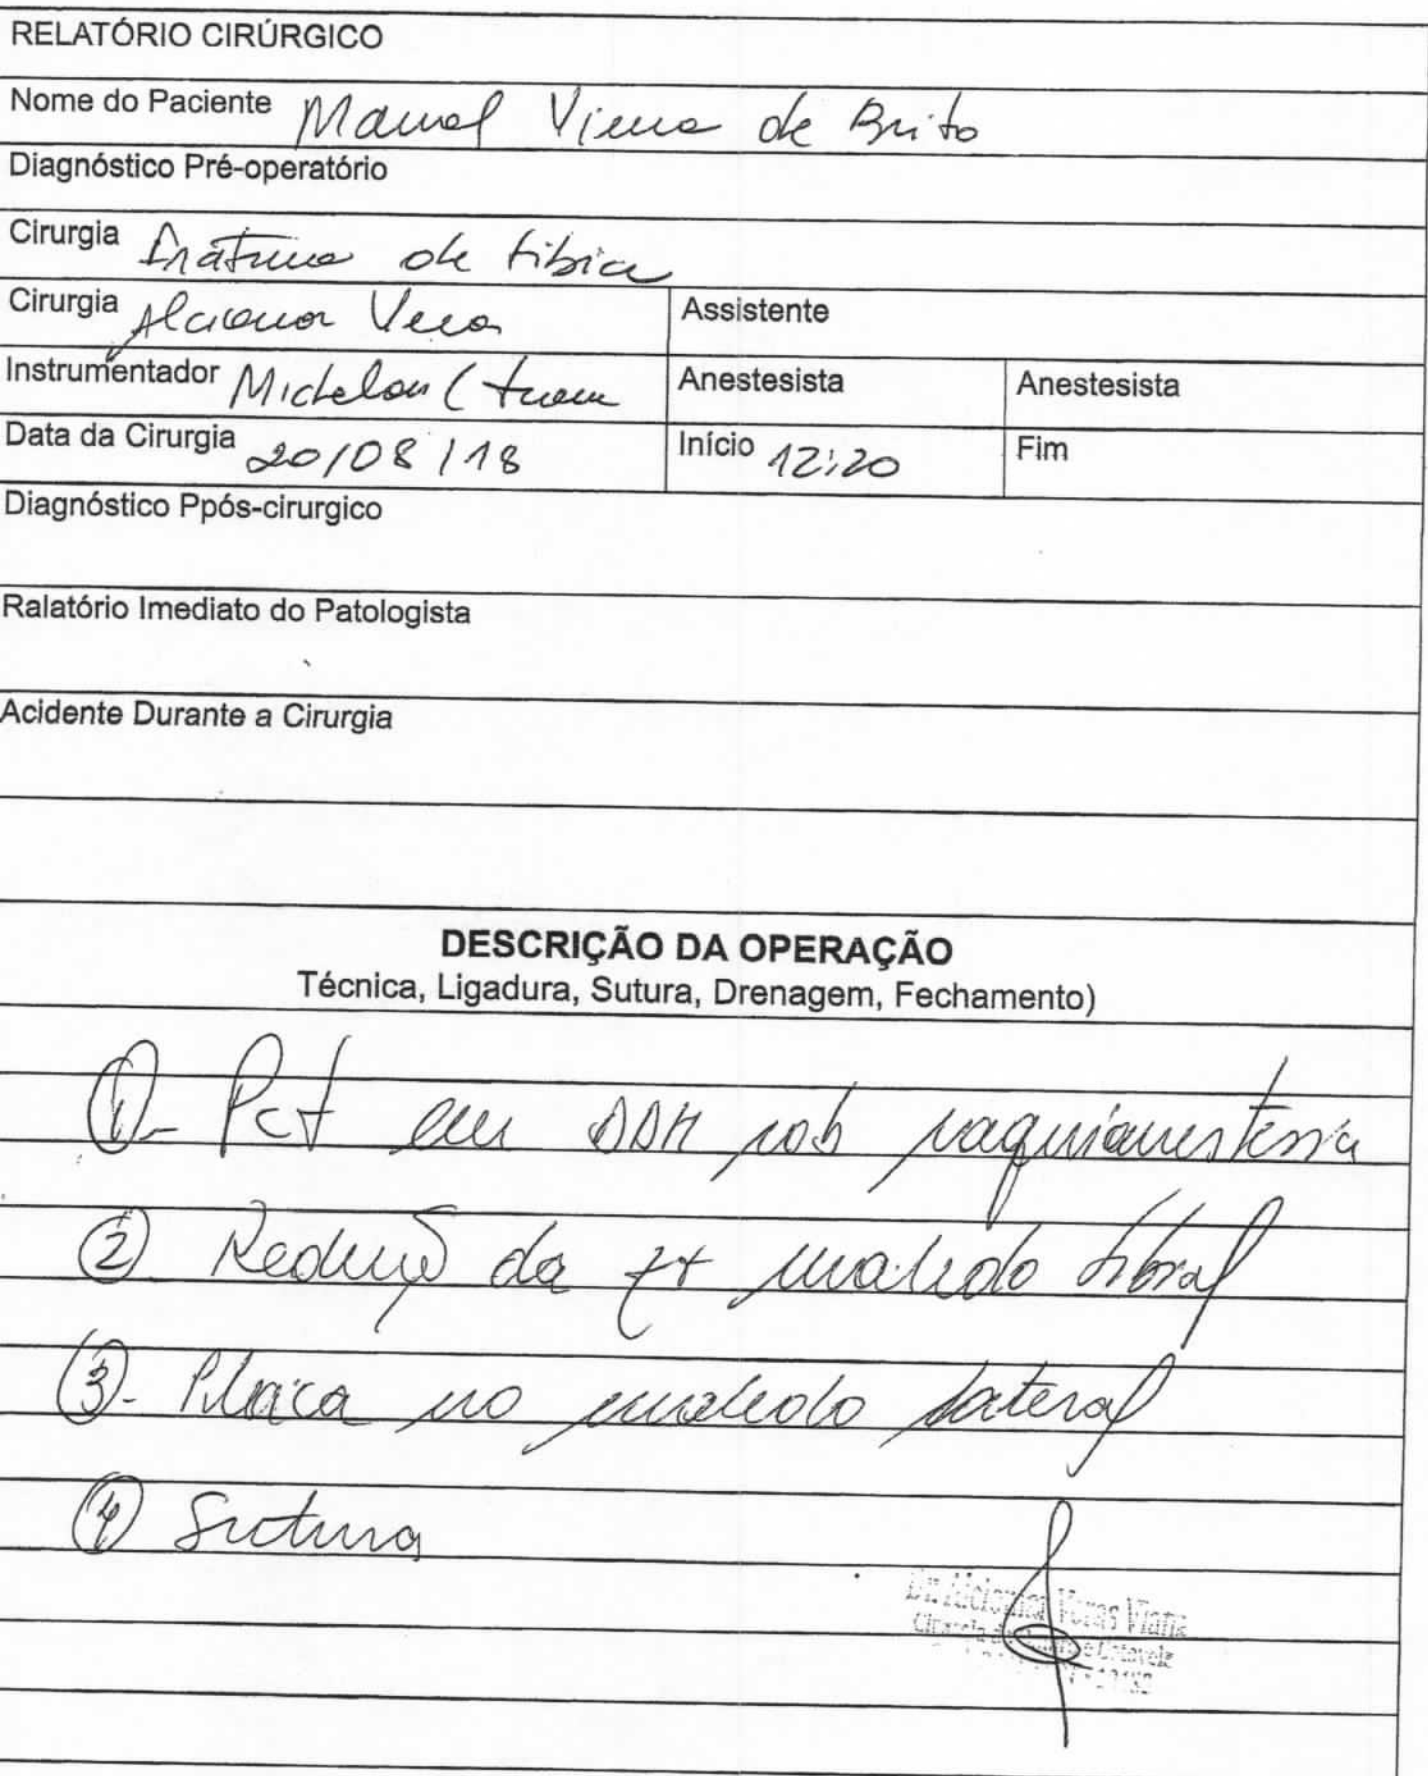 RELATÓRIO CIRÚRGICO
Nome do Paciente Manoel Vieira de Brito
Diagnóstico Pré-operatório
Cirurgia Fratura de tibia
Cirurgia Alcionor Veras
Assistente
Instrumentador Michelon (
Anestesista
Anestesista
Data da Cirurgia 20/08/18
Início 12:20
Fim
Diagnóstico Ppós-cirurgico
Ralatório Imediato do Patologista
Acidente Durante a Cirurgia
DESCRIÇÃO DA OPERAÇÃO
Técnica, Ligadura, Sutura, Drenagem, Fechamento)
1- Pct em DDH sob raquianestesia
2 Redução da fx maleolo tibial
3- Placa no maleolo lateral
4 Sutura
Dr. Veras Viana